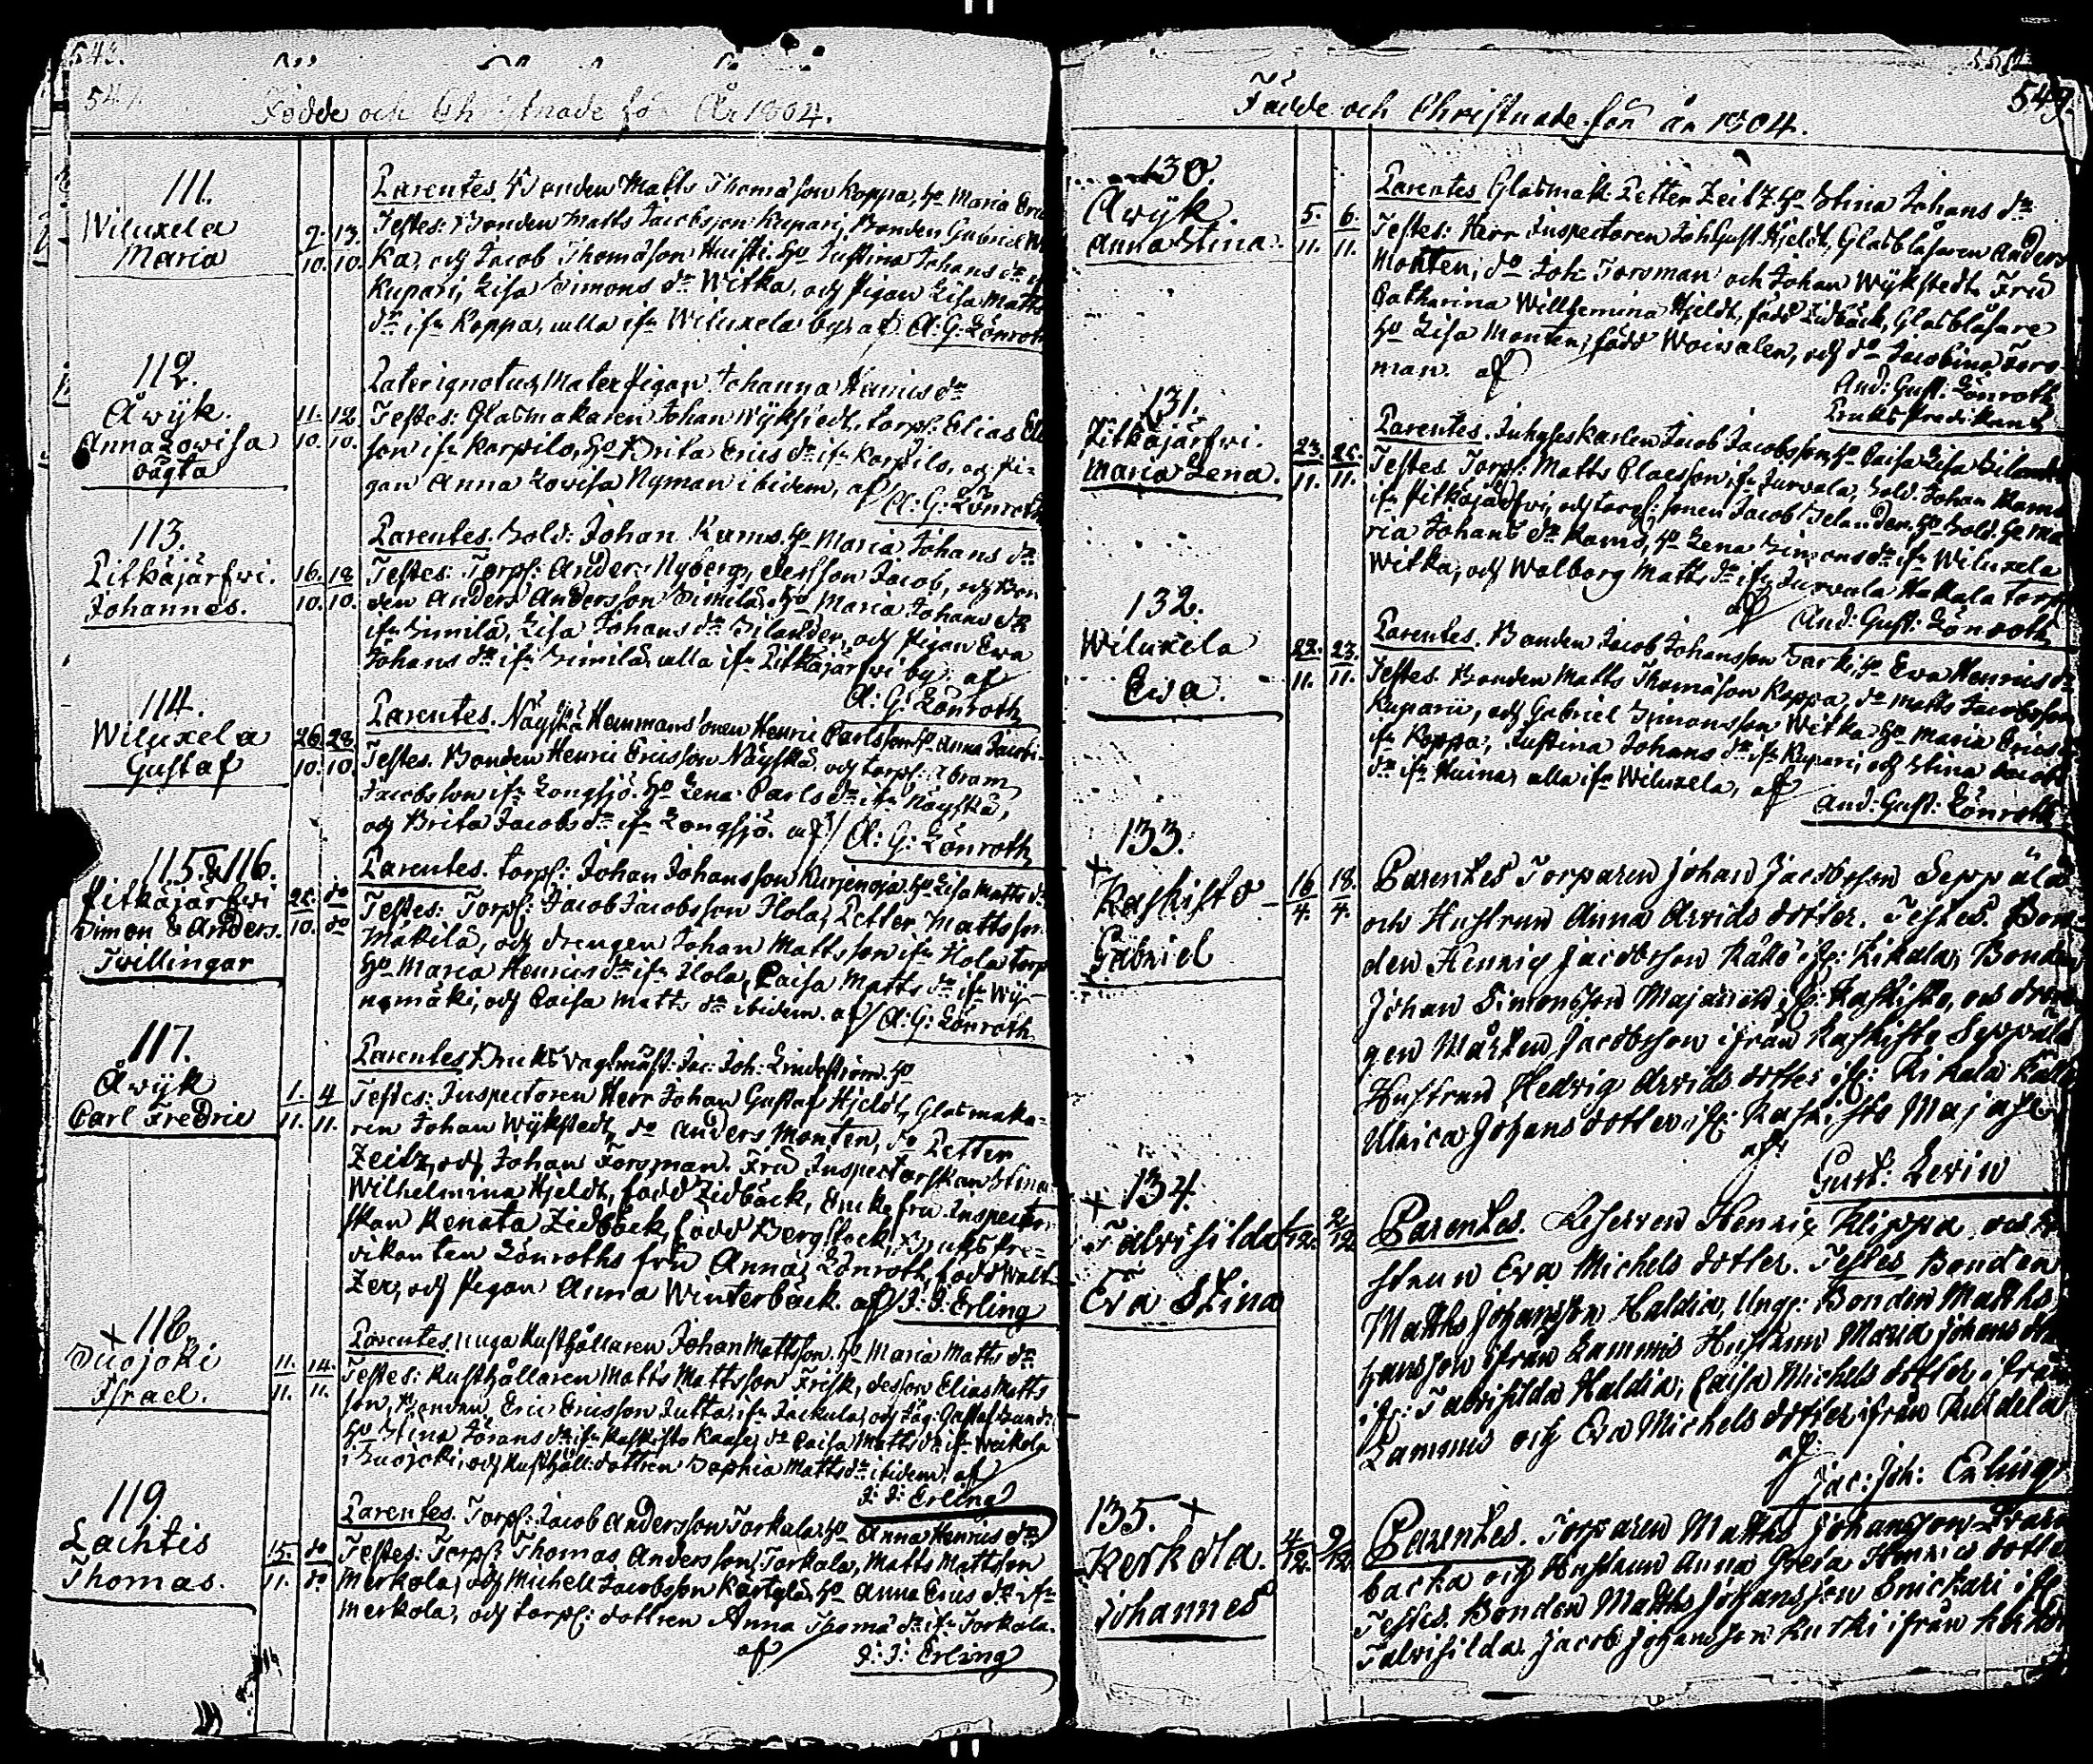 543.
547.
Födde och Christnade för År 1804.
111.
Wiluxela
Maria
9. 13.
10. 10.
Parentes Bonden Matts Thomasson Koppa, H° Maria Erics
Testes: Bonden Matts Jacobsson Kupari, Bonden Gabriel Wit
ka, och Jacob Thomasson Huisti. H° Justina Johans dr
Kupari, Lisa Simons dr Witka, och Pigan Lisa Matts
dr ifr Koppa, alla ifr Wiluxela by: af A: G: Lönroth
112.
Åwÿk.
Anna Lowisa
oägta
11. 12
10. 10.
Pater ignotus, Mater Pigan Johanna Henrics dr
Testes: Glasmakaren Johan Wÿkstedt, torp: Elias Eli
son ifr Karpilo, H° Brita Erics dr ifr Karpilo, och Pi-
gan Anna Lowisa Nyman ibidem, af
A: G: Lönroth
113.
Pitkäjärfwi.
Johannes.
16. 18
10. 10.
Parentes. Sold: Johan Rams. H° Maria Johans dr
Testes: Torp: Anders Nyberg, dess son Jacob, och Bon
den Anders Andersson Simila, H° Maria Johans dr
ifr Simila, Lisa Johans dr Silander, och Pigan Ewa
Johans dr ifr Simila, alla ifr Pitkäjärfwi by: af
A: G: Lönroth
114.
Wiluxela
Gustaf
26. 28
10. 10.
Parentes. Näyskä Hemmans sonen Henric Carlsson H° Anna Jacobs
Testes. Bonden Henric Ericsson Näyskä, och torp: Abram
Jacobsson ifr Longsjö. H° Lena Carls dr ifr Näyskä,
och Brita Jacobs dr ifr Longsjö. af A: G: Lönroth
115. & 116.
Pitkäjärfwi
Simon & Anders.
Twillingar
25. do
10. do
Parentes. torp: Johan Johansson Kurjenoja, H° Lisa Matts dr
Testes: Torp: Jacob Jacobsson Ilola, Petter Mattsson
Mäkilä, och drengen Johan Mattsson ifr Ilola torp
H° Maria Henrics dr ifr Ilola, Caisa Matts dr ifr Wÿ
nämäki, och Caisa Matts dr ibidem. af A: G: Lönroth
117.
Åwÿk
Carl Fredric
1. 4
11. 11.
Parentes Bruks wagtmäst: Jac: Joh: Lindström. H°
Testes: Inspectoren Herr Johan Gustaf Hjeldt, Glasmaka-
ren Johan Wÿkstedt, do Anders Monten, do Petter
Zeitz, och Johan Forsman. Fru Inspectorskan Stina
Wilhelmina Hjeldt, född Zidbäck, Enke fru Inspector
skan Renata Zidbäck, född Bergstock, Bruks Pre-
dikanten Lönroths fru Anna Lönroth, född Walt
Zer, och Pigan Anna Winterbäck. af J: J: Erling
118.
Suojoki
Israel.
11. 14.
11. 11.
Parentes. unga Rusthållaren Johan Mattsson. H° Maria Matts dr
Testes: Rusthållaren Matts Mattsson Frisk, dess son Elias Matts
son, Bonden Eric Ericsson Jutta, ifr Jackula, och
H° Stina Jörans dr ifr Kaskisto Kaase, do Caisa Matts dr ifr Weikola
i Suojoki, och Rusthåll: dottren Sophia Matts dr ibidem, af
J: J: Erling
119.
Lachtis
Thomas.
15. do
11. do
Parentes. Torp: Jacob Andersson Torkala, H° Anna Henrics dr
Testes: Torp: Thomas Andersson Torkala, Matts Mattsson
Merkola, och Michell Jacobsson Kärtylä, H° Anna Erics dr ifr
Merkola, och torp: dottren Anna Thoma dr ifr Torkala.
af J: J: Erling
549.
Födde och Christnade för år 1804.
130.
Awÿk.
Anna Stina.
5. 6.
11. 11.
Parentes Glasmak: Petter Zeitz H° Stina Johans dr
Testes: Herr Inspectoren Joh: Gust: Hjeldt, Glasblåsaren Anders
Monten, do Joh: Forsman och Johan Wÿkstedt. Fru
Catharina Willhemina Hjeldt, född Zidbäck, Glasblåsare
H° Lisa Monten, född Woiwalen, och do Jacobina Fors-
man. af
And: Gust: Lönroth
Bruks Predikant
131.
Pitkäjärfwi.
Maria Lena.
23. 25.
11. 11.
Parentes. Inhyseskarlen Jacob Jacobsson H° Caisa Lisa Siland
Testes. Torp: Matts Claesson ifr Jurwala, Sold: Johan Rams
ifr Pitkäjärfwi, och torp: sonen Jacob Selander. H° Sold: H° Ma
ria Johans dr Rams, H° Lena Simons dr ifr Wiluxela
Witka, och Walborg Matts dr ifr Jurwala Hakala torp
af And: Gust: Lönroth
132.
Wiluxela
Ewa.
22. 23.
11. 11.
Parentes. Bonden Jacob Johansson Sarki, H° Ewa Henrics dr
Testes. Bonden Matts Thomasson Koppa, do Matts Jacobsson
Kuparii, och Gabriel Simonsson Witka H° Maria Erics
ifr Koppa, Justina Johans dr ifr Kupari, och Stina Jacobs
dr ifr Huina, alla ifr Wiluxela, af
And: Gust: Lönroth
133.
Kaskisto
Gabriel
16 18.
4. 4.
Parentes Torparen Johan Jacobsson Seppälä
och Hustrun Anna Arvids dotter. Testes. Bon-
den Henrig Jacobsson Källi ifr: Kikala, Bonden
Johan Simonsson Majasild ifr: Kaskisto, och dren-
gen Mårten Jacobsson ifrån Kaskisto Seppälä
Hustrun Hedvig Arvids dotter ifr: Kikala Källi
Ulrica Johans dotter ifr: Kaskisto Majasil
af Gust: Levin
134.
Talvisilda
Eva Stina
1/12. 2/12
Parentes. Reserven Henric Klippa och H
strun Eva Michels dotter. Testes Bonden
Matths Johansson Haldia, Unge: Bonden Matths
hansson ifrån Lammis Hustrun Maria Johans dot
ifr: Talvisilda Haldia; Caisa Michels dotter ifrån
Lammis och Eva Michels dotter ifrån Kuldela
af Jac: Joh: Erling
135.
Kerkola.
Johannes
4/12. 9/12
Parentes. Torparen Matths Johansson
backa och Hustrun Anna Greta Henrics dotter
Testes. Bonden Matths Johansson Snickari ifr
Talvisilda. Jacob Johansson Kurki ifrån